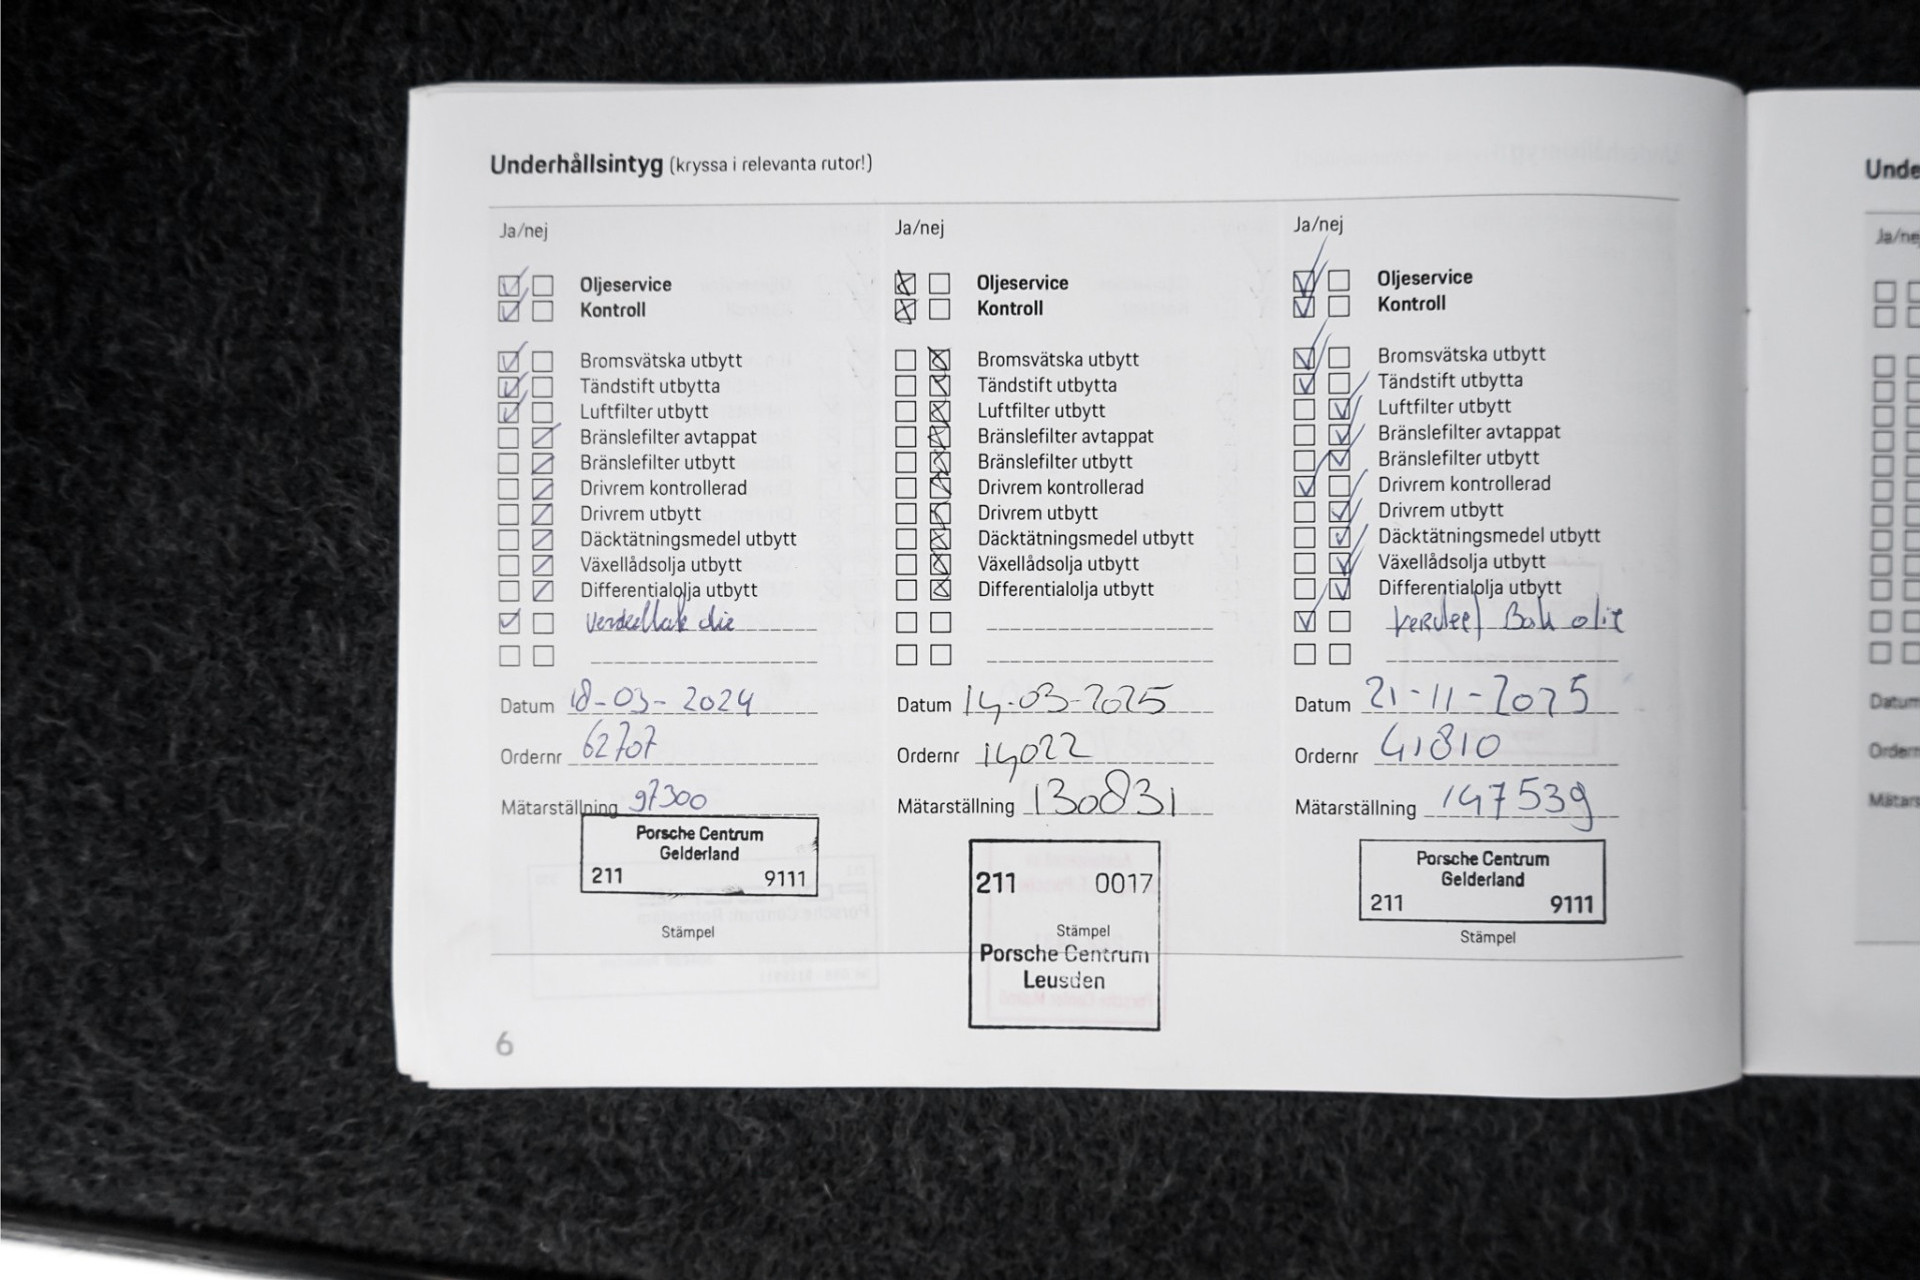 Underhållsintyg (kryssa i relevanta rutor!)
Ja/nej
Oljeservice
Kontroll
Bromsvätska utbytt
Tändstift utbytta
Luftfilter utbytt
Bränslefilter avtappat
Bränslefilter utbytt
Drivrem kontrollerad
Drivrem utbytt
Däcktätningsmedel utbytt
Växellådsolja utbytt
Differentialolja utbytt
Datum 18-03-2024
Ordernr 62707
Mätarställning 97300
Porsche Centrum
Gelderland
211 9111
Stämpel
Ja/nej
Oljeservice
Kontroll
Bromsvätska utbytt
Tändstift utbytta
Luftfilter utbytt
Bränslefilter avtappat
Bränslefilter utbytt
Drivrem kontrollerad
Drivrem utbytt
Däcktätningsmedel utbytt
Växellådsolja utbytt
Differentialolja utbytt
Datum 14-03-2025
Ordernr 14022
Mätarställning 130831
211 0017
Stämpel
Porsche Centrum
Leusden
Ja/nej
Oljeservice
Kontroll
Bromsvätska utbytt
Tändstift utbytta
Luftfilter utbytt
Bränslefilter avtappat
Bränslefilter utbytt
Drivrem kontrollerad
Drivrem utbytt
Däcktätningsmedel utbytt
Växellådsolja utbytt
Differentialolja utbytt
Bak olie
Datum 21-11-2025
Ordernr 41810
Mätarställning 147539
Porsche Centrum
Gelderland
211 9111
Stämpel
6
Unde
Ja/ne
Datum
Ordern
Mätars